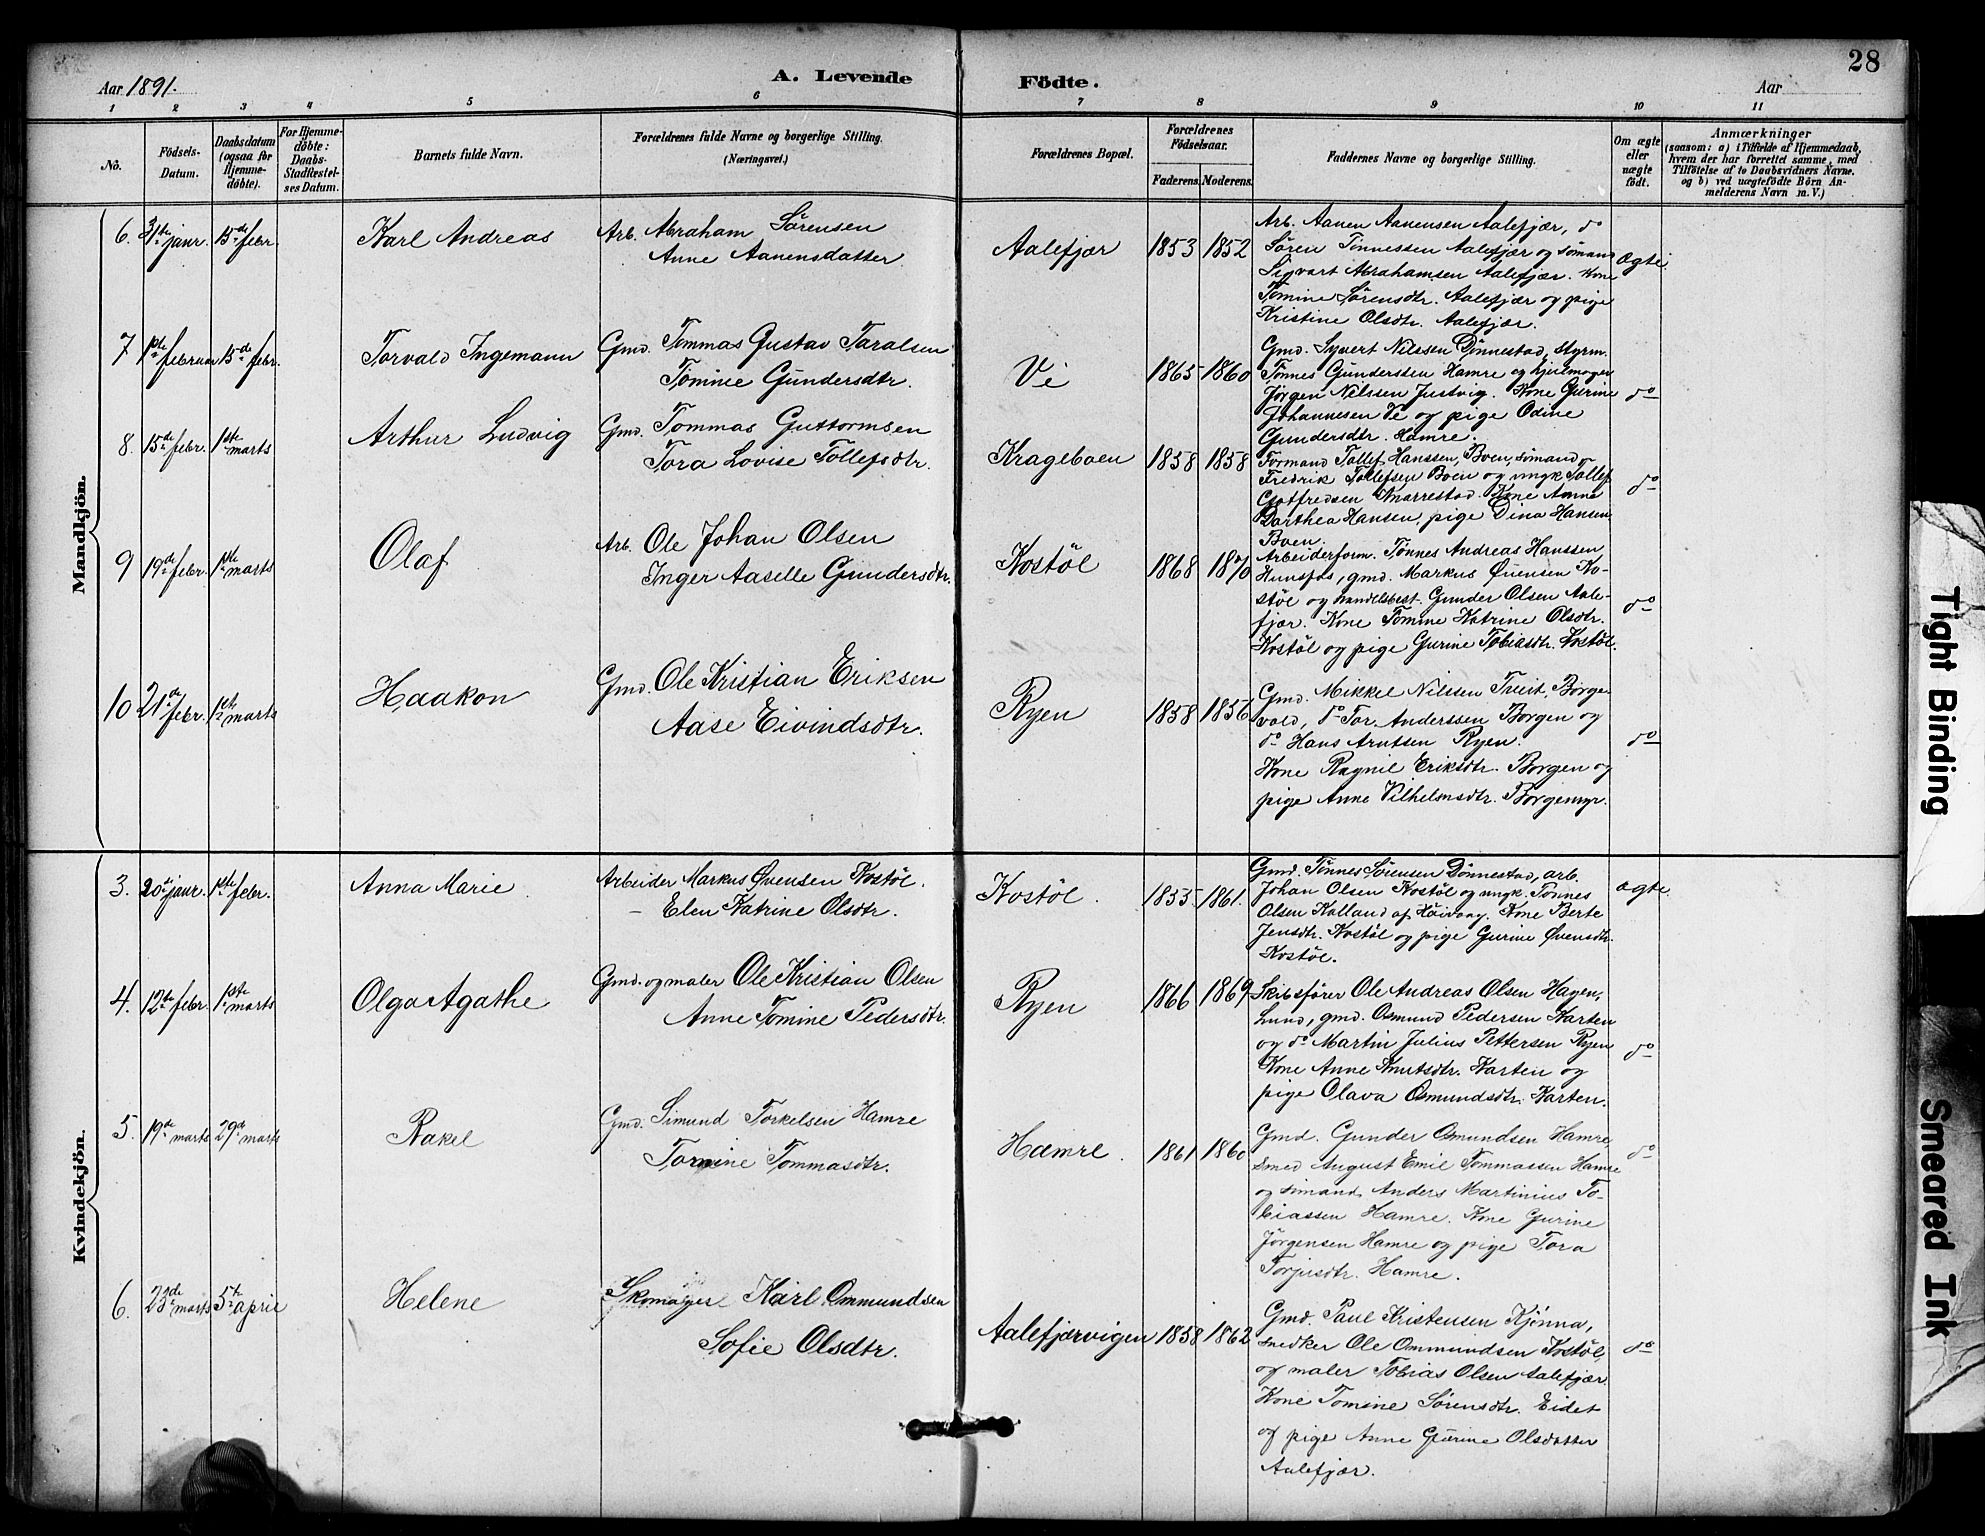 28
Aar 1891.
A. Levende Födte.
Aar
1 2 3 4 5 6 7 8 9 10 11
No.
Födsels-
Datum.
Daabsdatum
(ogsaa for
Hjemme-
döbte).
For Hjemme-
döbte:
Daabs-
Stadfæstel-
ses Datum.
Barnets fulde Navn.
Forældrenes fulde Navne og borgerlige Stilling.
(Næringsvei.)
Forældrenes Bopæl.
Forældrenes
Födselsaar.
Faderens. Moderens.
Faddernes Navne og borgerlige Stilling.
Om ægte
eller
uægte
födt.
Anmærkninger
(saasom: a) i Tilfælde af Hjemmedaab,
hvem der har forrettet samme, med
Tilföielse af to Daabsvidners Navne.
og b) ved uægtefödte Börn An-
melderens Navn m. V.)
Mandkjön.
6. 31te janr. 15de febr. Karl Andreas
Arb. Abraham Sörensen
Anne Aanensdatter
Aalefjær 1853 1852
Arb. Aanen Aanensen Aalefjær, do
Sören Tönnessen Aalefjær og sömand
Sigvart Abrahamsen Aalefjær. Kone
Tomine Sörensdtr. Aalefjær og pige
Kristine Olsdtr. Aalefjær.
ægte
7 1ste februar 15de febr. Torvald Ingemann
Gmd. Tommas Gustav Taralsen
Tomine Gundersdtr.
Ve 1865 1860
Gmd. Syvert Nilssen Dönnestad, styrm.
Tönnes Gunderssen Hamre og hjulmager
Jörgen Nilssen Justvig. Kone Gurine
Johannesen Ve og pige Odine
Gundersdtr. Hamre.
do
8. 15de febr. 1ste marts Arthur Ludvig
Gmd. Tommas Guttormsen
Tora Lovise Tollefsdtr.
Krageboen 1858 1858
Formand Tollef Hanssen, Boen, sömand
Fredrik Tollefsen Boen og ungk. Tollef
Gotfredsen Knarrestad. Kone Anna
Darthea Hansen, pige Dina Hansen
Boen.
do
9 19de febr. 1ste marts Olaf
Arb. Ole Johan Olsen
Inger Aaselle Gundersdtr.
Kostöl 1868 1870
Arbeiderform. Tönnes Andreas Hanssen
Hunsfos, gmd. Markus Øvensen Ko-
stöl og handelsbest. Gunder Olsen Aale-
fjær. Kone Tomine Katrine Olsdtr.
Kostöl og pige Gurine Tobiasdtr. Kostöl.
do
10 21de febr. 1ste marts Haakon
Gmd. Ole Kristian Eriksen
Aase Eivindsdtr.
Ryen 1858 1856
Gmd. Mikkel Nilssen Tveit, Börge-
vold, do Tor. Anderssen Borgen og
do Hans Arntsen Ryen.
Kone Ragnil Eriksdtr. Borgen og
pige Anne Vilhelmsdtr. Borgemyr.
do
Kvindekjön.
3. 20de janr. 1ste febr. Anna Marie
Arbeider Markus Øvensen Kostöl.
– Elen Katrine Olsdtr.
Kostöl. 1855 1861.
Gmd. Tönnes Sörensen Dönnestad, arb.
Johan Olsen Kostöl og ungk. Tönnes
Olsen Kalland af Höivaag. Kone Berte
Jensdtr. Kostöl og pige Gurine Øvensdtr.
Kostöl.
ægte.
4. 12te febr. 1ste marts Olga Agathe
Gmd. og maler Ole Kristian Olsen
Anne Tomine Pedersdtr.
Ryen 1866 1869
Skibsförer Ole Andreas Olsen Hagen,
Lund, gmd. Osmund Pedersen Karten
og do Martin Julius Pettersen Ryen
Kone Anne Knutsdtr. Karten og
pige Olava Osmundsdtr. Karten.
do
5. 19de marts 29de marts Rakel
Gmd. Simund Torkelsen Hamre
Tomine Tommasdtr.
Hamre. 1861 1860
Gmd. Gunder Osmundsen Hamre
Smed August Emil Tommassen Hamre
og sömand Anders Martinius To-
biassen Hamre. Kone Gurine
Jörgensen Hamre og pige Tora
Torjusdtr. Hamre.
do
6. 23de marts 5te april Helene
Skomager Karl Ommundsen
Sofie Olsdtr.
Aalefjærvigen 1858 1862
Gmd. Paul Kristensen Kjønna,
snedker Ole Ommundsen Kostöl,
og maler Tobias Olsen Aalefjær.
Kone Tomine Sörensdtr. Eidet
og pige Anne Gurine Olsdatter
Aalefjær.
do
Tight Binding
Smeared Ink